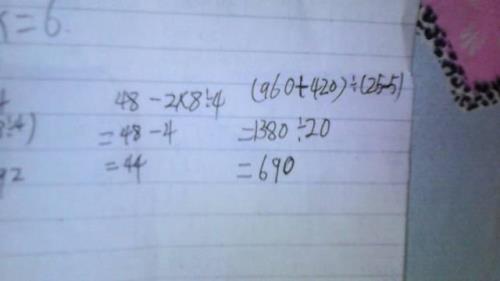 x=6.
48-2×8÷4
=48-4
=44
(960+420)÷(25-5)
=1380÷20
=690